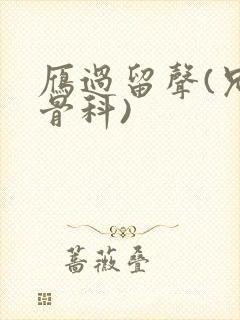 雁過留聲(兄
骨科)
蔷薇疊